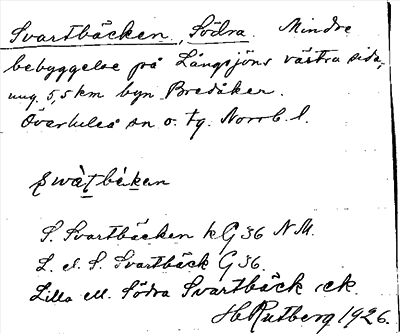 Svartbäcken, Södra. Mindre
bebyggelse på Långsjöns västra sida,
ung. 5,5 km byn Bredåker.
Överluleå sn o. tg. Norrb. l.
swàt̠bék̠en
S. Svartbäcken kG 36 N.M.
L. el. S. Svartbäck G 36.
Lilla ell. Södra Svartbäck ck.
H. Rutberg 1926.